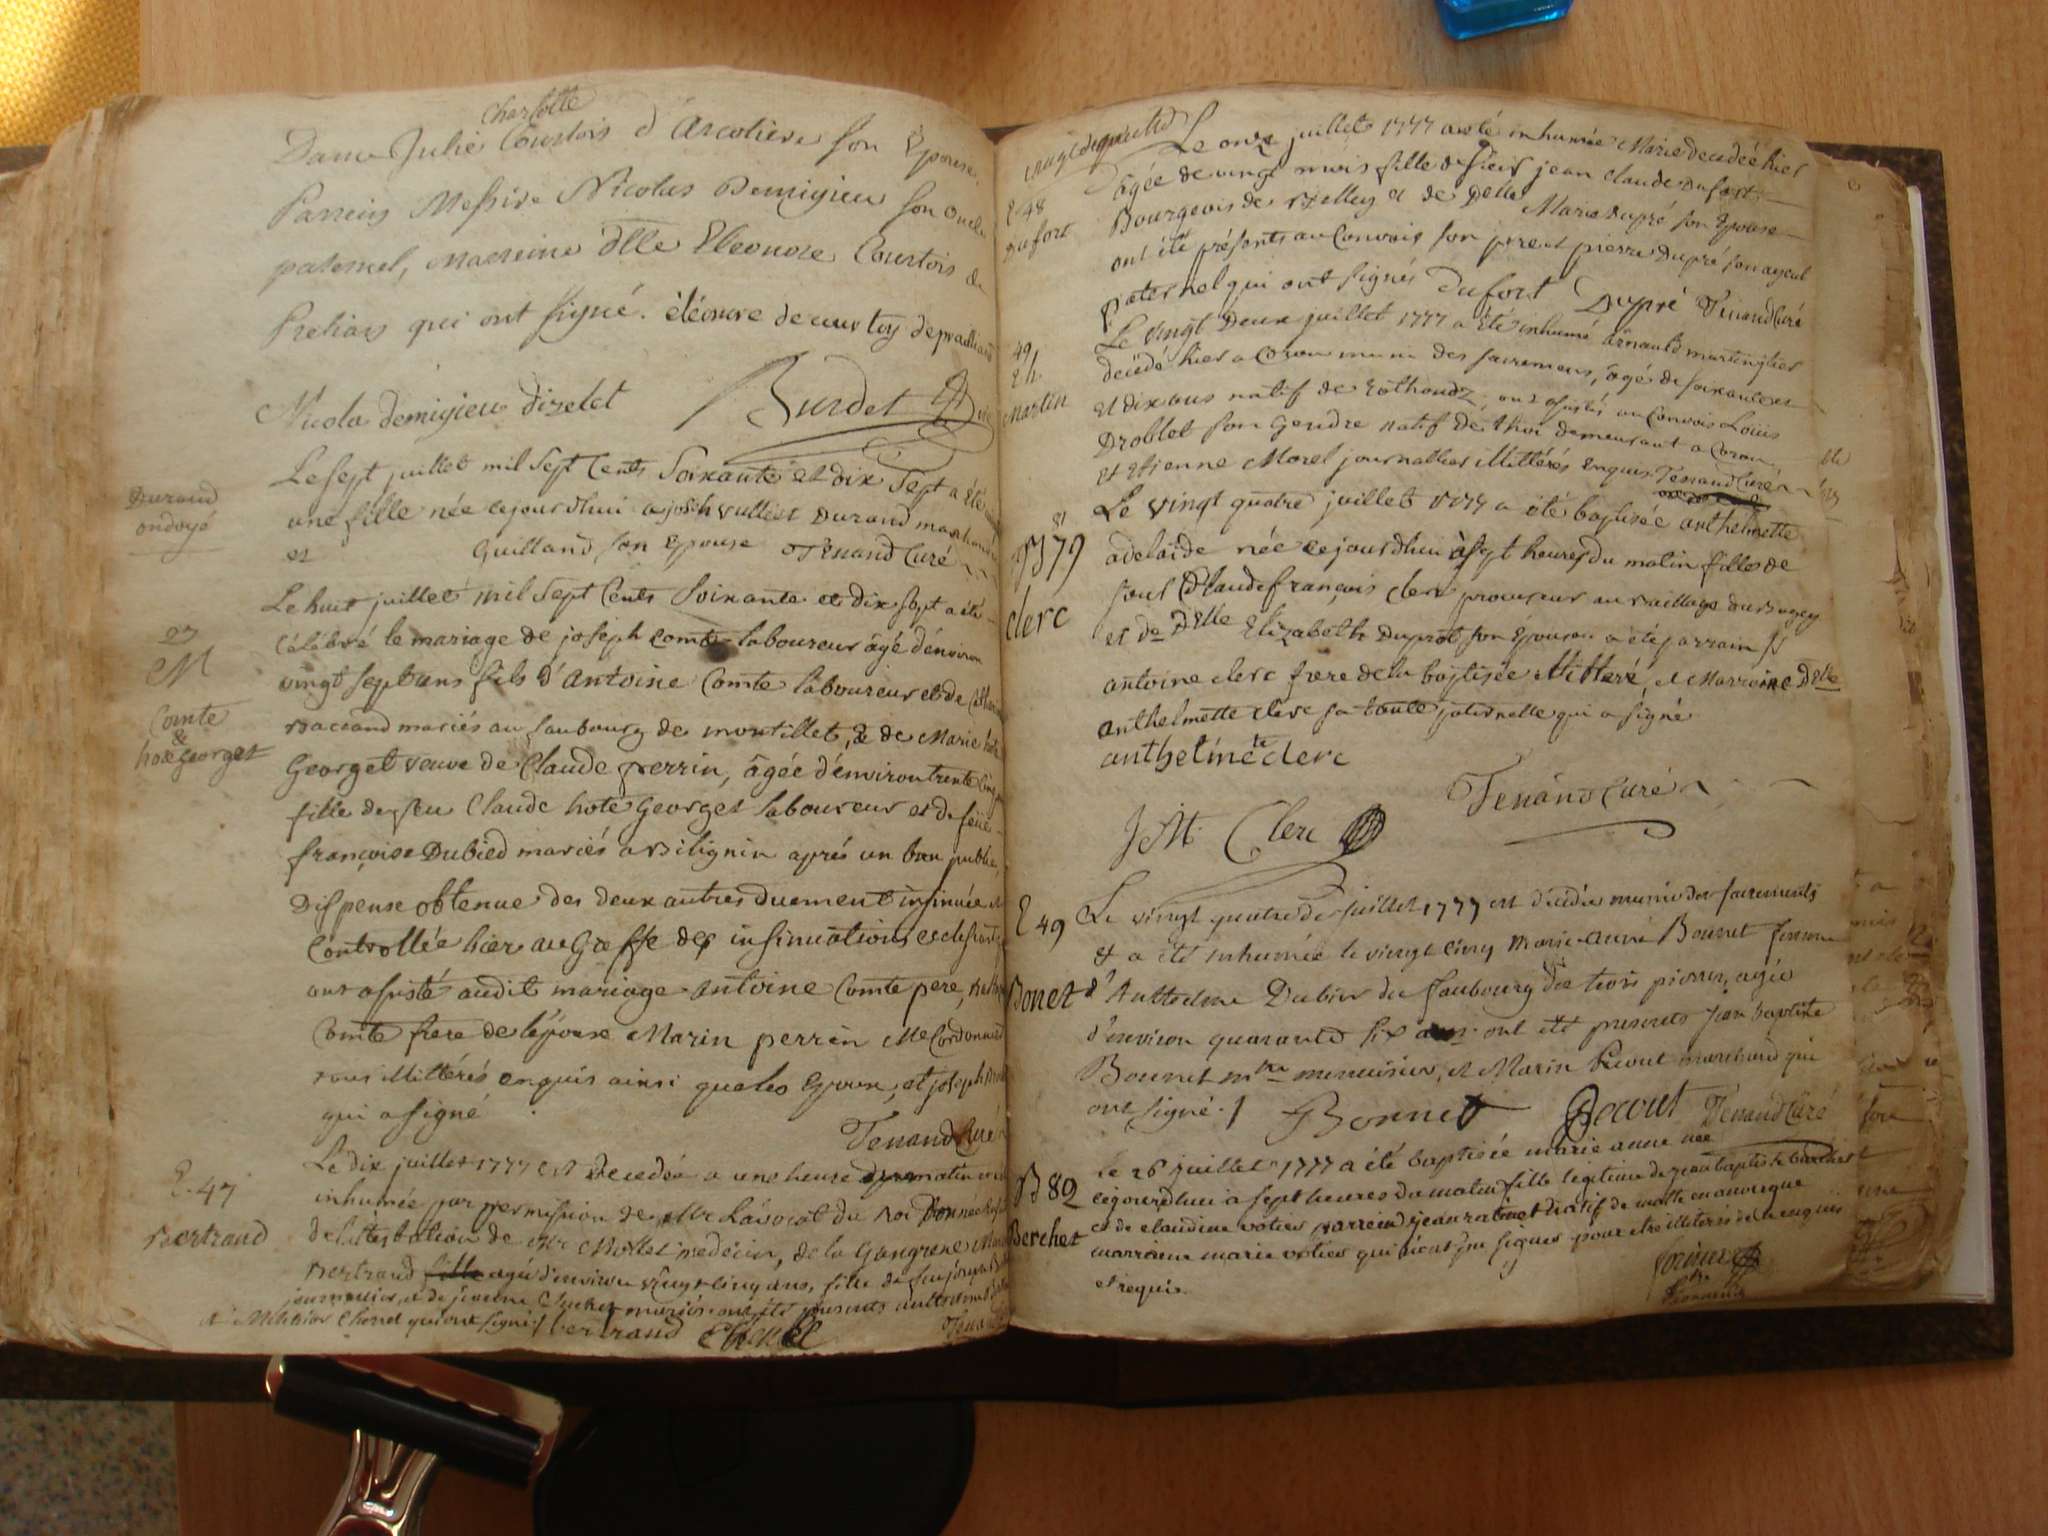 Charlotte
Dame Julie Courtois d'Arcolieres son Epouse.
Parrein Messire Nicolas Demigieu son oncle
paternel, marreine dlle Eleonore Courtois de
qui ont signé. éléonore de
Nicola demigieu dizelet
Le sept juillet mil sept Cents Soixante et dix sept a été
Durand
ondoyé
une fille née cejourdhui a joseph vulliet Durand
et Guilland son Epouse Tenand Curé
Le huit juillet mil sept Cents Soixante et dix sept a été
27
M
Comte
&
hote Georget
célébré le mariage de joseph Comte laboureur âgé d'environ
vingt sept ans fils d'antoine Comte laboureur et de
mariés au faubourg de montillet, & de Marie hote
Georget veuve de Claude perrin, âgée d'environ trente cinq
fille de feu Claude hote Georget laboureur et de feüe
françoise Dubied mariés a après un ban publié,
Dispense obtenue des deux autres duement insinuée et
Controllée hier au Greffe des insinuations
ont assisté audit mariage antoine Comte pere,
Comte frere de l'épouse Marin perrin Me Cordonnier
tous illittérés enquis ainsi que les Epoux, et joseph
qui a signé
Tenand Curé
E. 47
Bertrand
Le dix juillet 1777 est Decedée a une heure du matin
inhumée par permission de Mr L'avocat du Roi Donnée
de l'attestation de Mr Mollet medecin, de la Gangrene
Bertrand fille agée d'environ vingt cinq ans, fille de feu joseph
journalier, et de jeanne mariés ont été presents
et Melchior Chenel qui ont signé / bertrand Chenel
Le onze juillet 1777 a été inhumée Marie decedée hier
E. 48
Dufort
âgée de vingt mois fille de sieur jean claude Dufort
Bourgeois de Belley et de Delle Marie Dupré son Epouse
ont été présents au Convoi son pere et pierre Dupré son ayeul
paternel qui ont signés Dufort Dupré Tenand Curé
49
Martin
Le vingt Deux juillet 1777 a été inhumé arnauld
decedé hier a Coron muni des sacremens, âgé de soixante
et dix ans natif de ont assistés au Convoi Louis
Droblet son gendre natif de thoi demeurant a Coron
et Etienne Morel journallier illittérés enquis Tenand Curé
81
B 79
clerc
Le vingt quatre juillet 1777 a été baptisée anthelmette
adelaide née cejourdhui à sept heures du matin fille de
sieur Claude françois clerc procureur au Baillage du Bugey
et de Delle Elizabeth Duprat son Epouse a été parrain sr
antoine clerc frere de la baptisée illitteré, et Marraine Delle
anthelmette clerc sa tante paternelle qui a signé
anthelmette clerc
Tenand Curé
J M. Clerc
E 49
Bonet
Le vingt quatre de juillet 1777 est décédée munie des sacrements
& a été inhumée le vingt cinq Marie anne Bonnet femme
d'Anthelme Dubier du faubourg des trois pierres, agée
d'environ quarante six ans. ont été presents jean baptiste
Bonnet mtre menuisier, et Marin Recout marchand qui
ont signé. / Bonnet Recout Tenand Curé
B 82
Berchet
Le 26 juillet 1777 a été baptisée marie anne née
cejourdhui a sept heures du matin fille legitime de jean baptiste berchet
et de claudine votier parrein jean natif de
marraine marie votier qui n'ont pu signer pour etre illiterés de ce enquis
et requis.